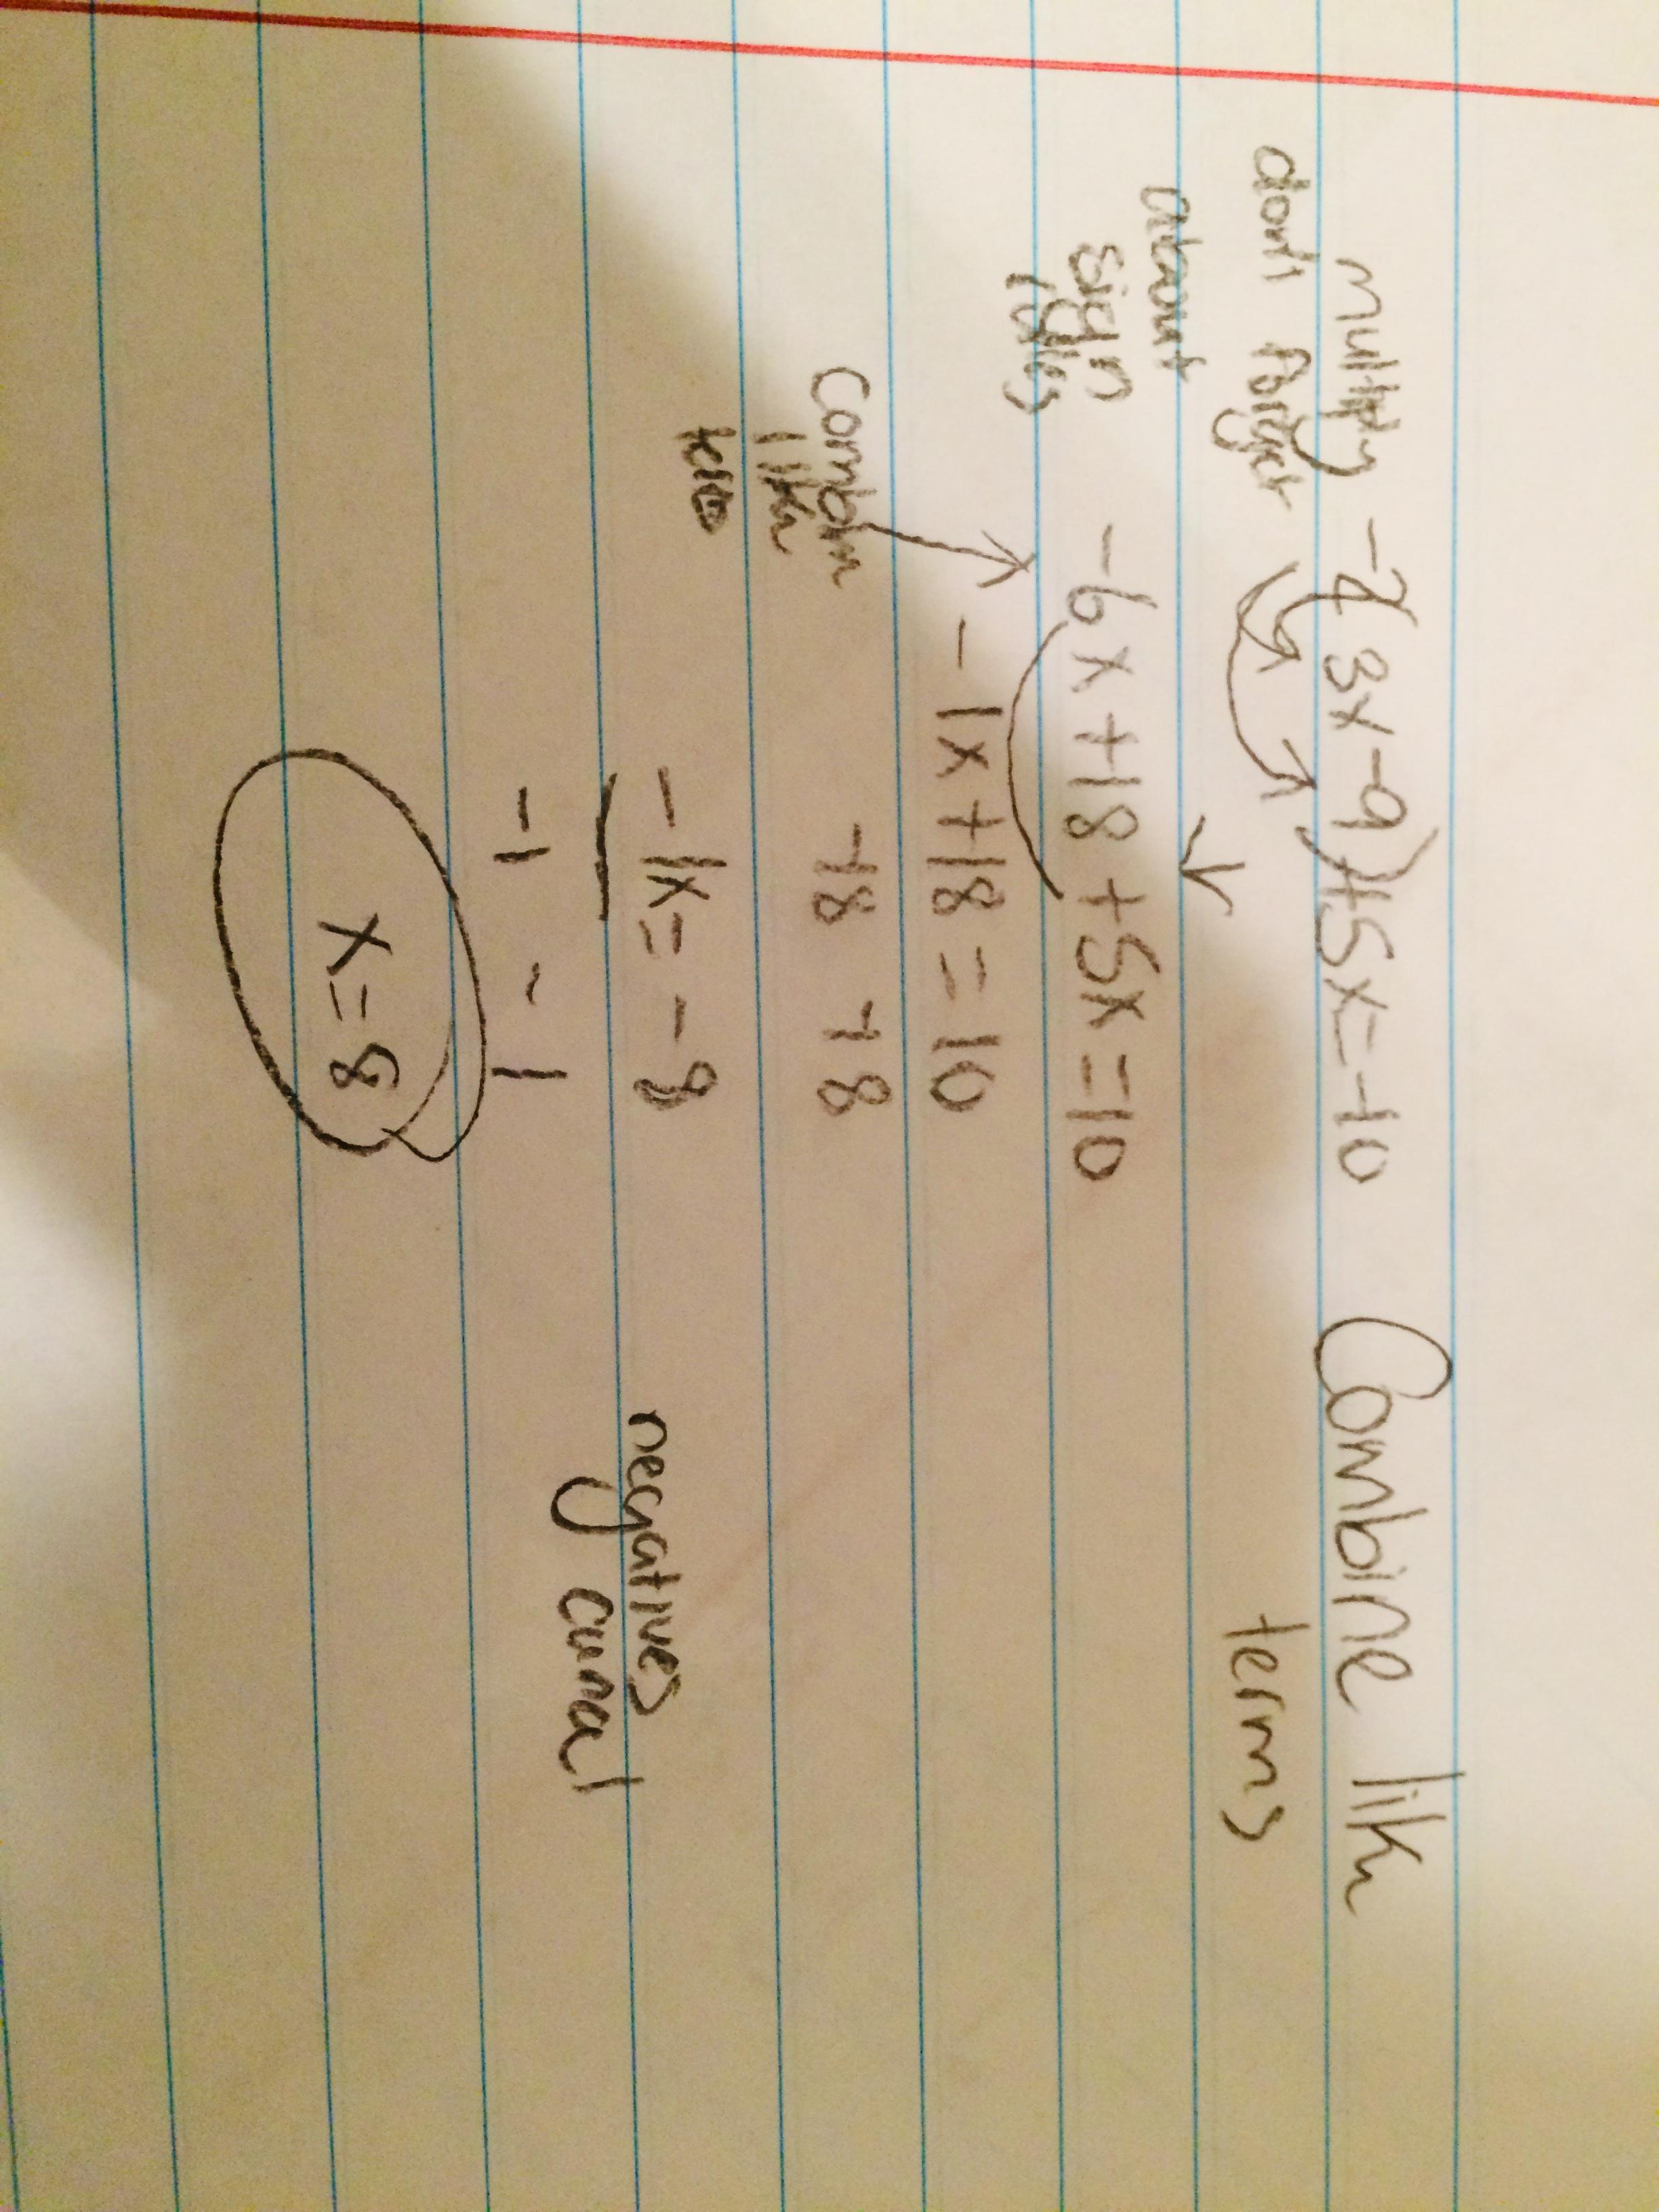 multiply -2(3x-9)+5x=10 Combine like
dont forget terms
about
sign
rules
-6x+18+5x=10
-1x+18=10
Combine
like
-18 -18
-1x=-8 negatives
-1 -1 cancel
x=8